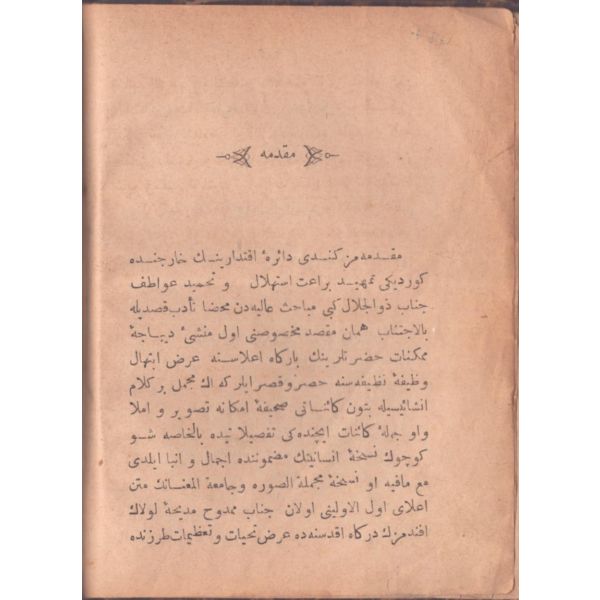 مقدمه
مقدمه‌مز كندی دائرهٔ اقتدارینك خارجنده
كوردیكی تمهید براعت استهلال و تحمید عواطف
جناب ذوالجلال كبی مباحث عالیه‌دن محضا تأدب قصدیله
بالاجتناب همان مقصد مخصوصنی اول منشیٔ دیباجهٔ
ممكنات حضرتلرینك بارگاه اعلاسنه عرض ابتهال
وظیفهٔ نظیفه‌سنه حصر و قصر ایلر كه اك مجمل بر كلام
انشائیسیله بتون كائناتی صحیفهٔ امكانه تصویر و املا
واو جملهٔ كائنات ایچنده‌كی تفصیلاتیده بالخاصه شو
كوچوك نسخهٔ انسانیتك مضموننده اجمال و انبا ایلدی
مع مافیه او نسخهٔ مجملة الصوره و جامعة المعنانك متن
اعلای اول الاولینی اولان جناب ممدوح مدیحهٔ لولاك
افندمزك دركاه اقدسنه‌ده عرض تحیات و تعظیمات طرزنده